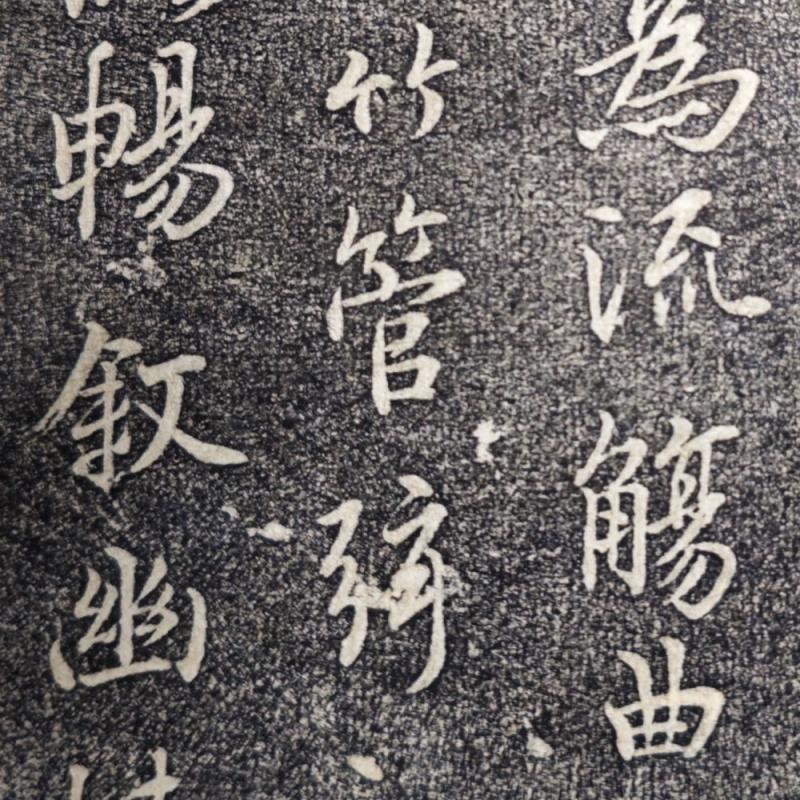 為流觴曲
竹管弦
暢叙幽